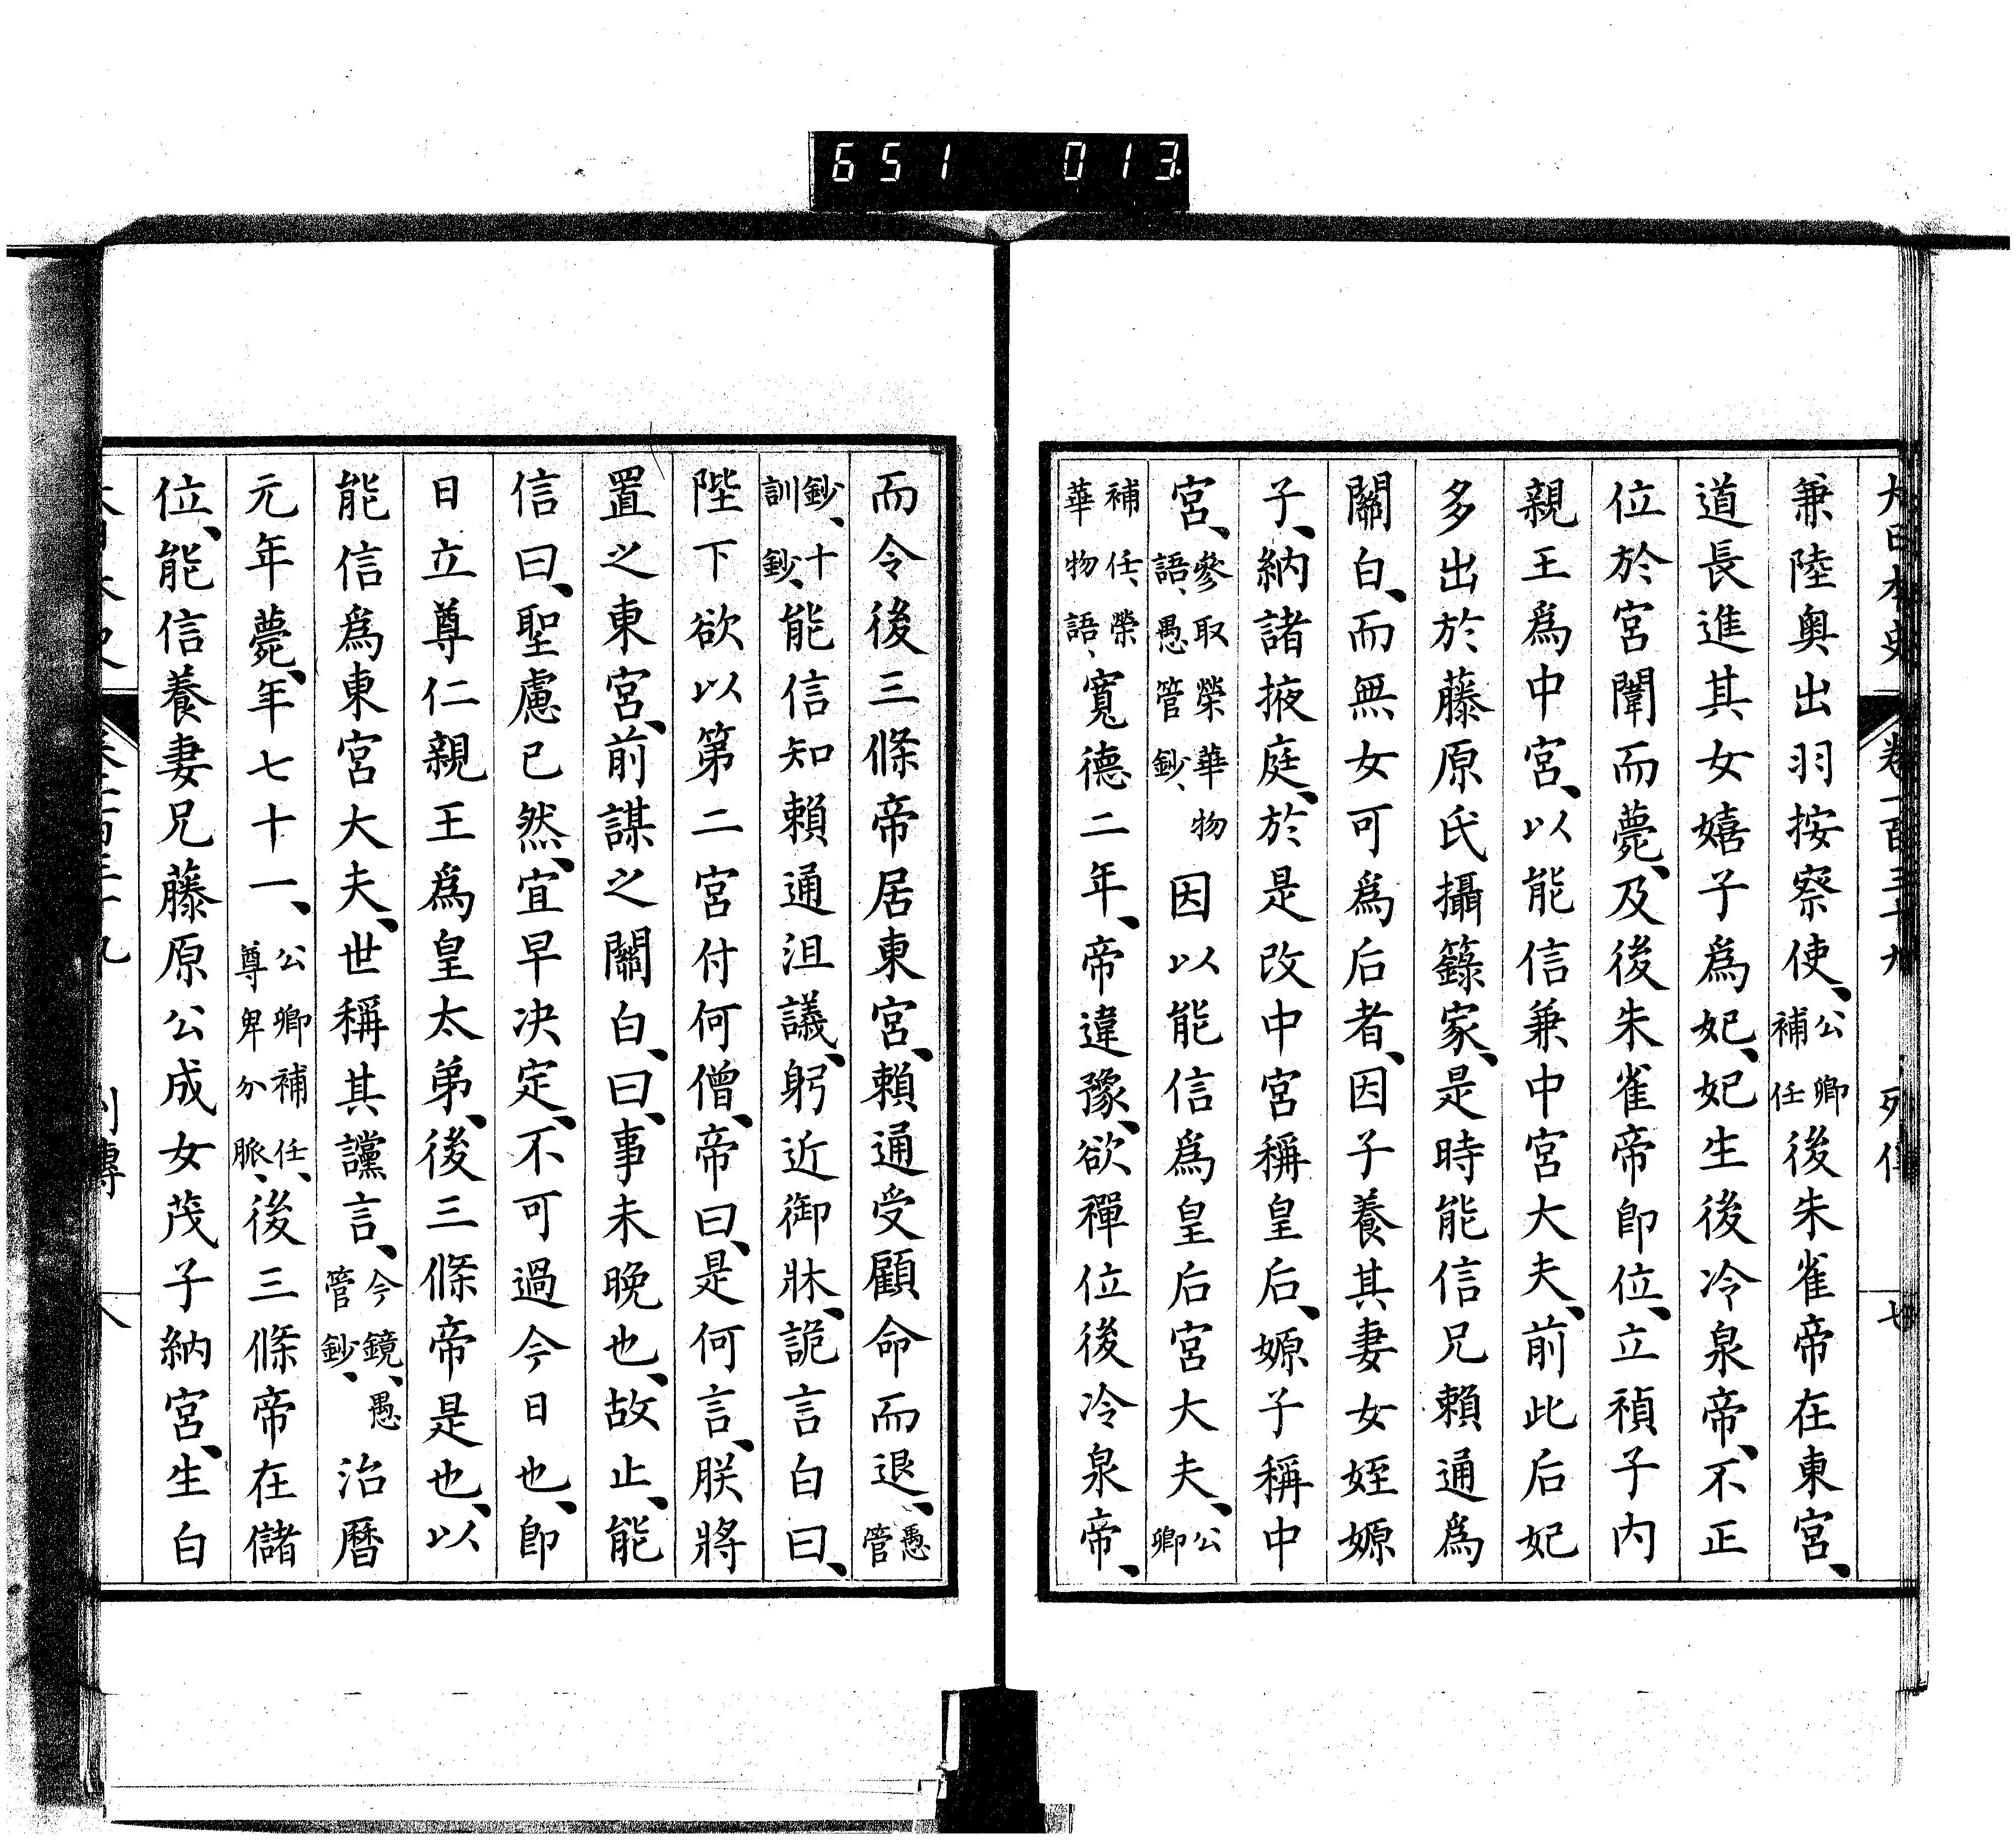 651 013
大日本史 卷一百三十九 列傳 七
兼陸奥出羽按察使、公卿補任後朱雀帝在東宮、
道長進其女嬉子爲妃、妃生後冷泉帝、不正
位於宮闈而薨、及後朱雀帝卽位、立禎子內
親王爲中宮、以能信兼中宮大夫、前此后妃
多出於藤原氏攝籙家、是時能信兄賴通爲
關白、而無女可爲后者、因子養其妻女姪嫄
子、納諸掖庭、於是改中宮稱皇后、嫄子稱中
宮、參取榮華物語、愚管鈔、因以能信爲皇后宮大夫、公卿
補任、榮華物語、寬德二年、帝違豫、欲禪位後冷泉帝、
而令後三條帝居東宮、賴通受顧命而退、愚管
鈔、十訓鈔、能信知賴通沮議、躬近御牀、詭言白曰、
陛下欲以第二宮付何僧、帝曰、是何言、朕將
置之東宮、前謀之關白、曰、事未晩也、故止、能
信曰、聖慮已然、宜早决定、不可過今日也、卽
日立尊仁親王爲皇太弟、後三條帝是也、以
能信爲東宮大夫、世稱其讜言、今鏡、愚管鈔、治暦
元年薨、年七十一、公卿補任、尊卑分脈、後三條帝在儲
位、能信養妻兄藤原公成女茂子納宮、生白